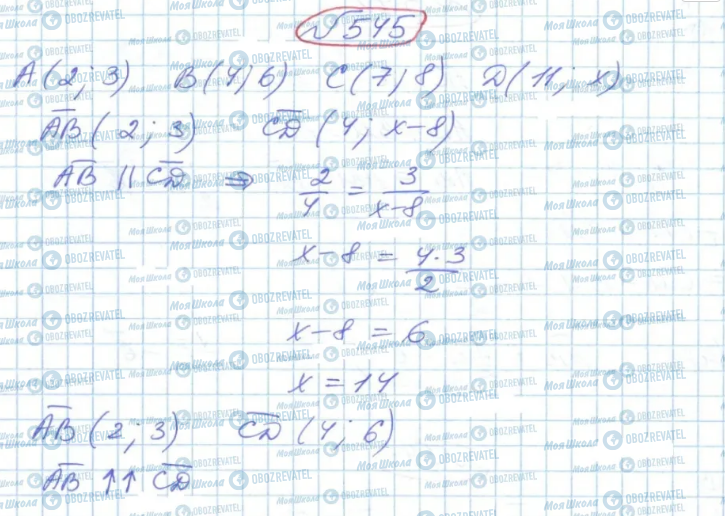 № 545
A(2; 3) B(4; 6) C(7; 8) D(11; x)
A̅B̅ (2; 3) C̅D̅ (4; x-8)
A̅B̅ || C̅D̅ ⇒ 2/4 = 3/(x-8)
x-8 = (4·3)/2
x-8 = 6
x = 14
A̅B̅ (2; 3) C̅D̅ (4; 6)
A̅B̅ ↑↑ C̅D̅
Моя Школа OBOZREVATEL